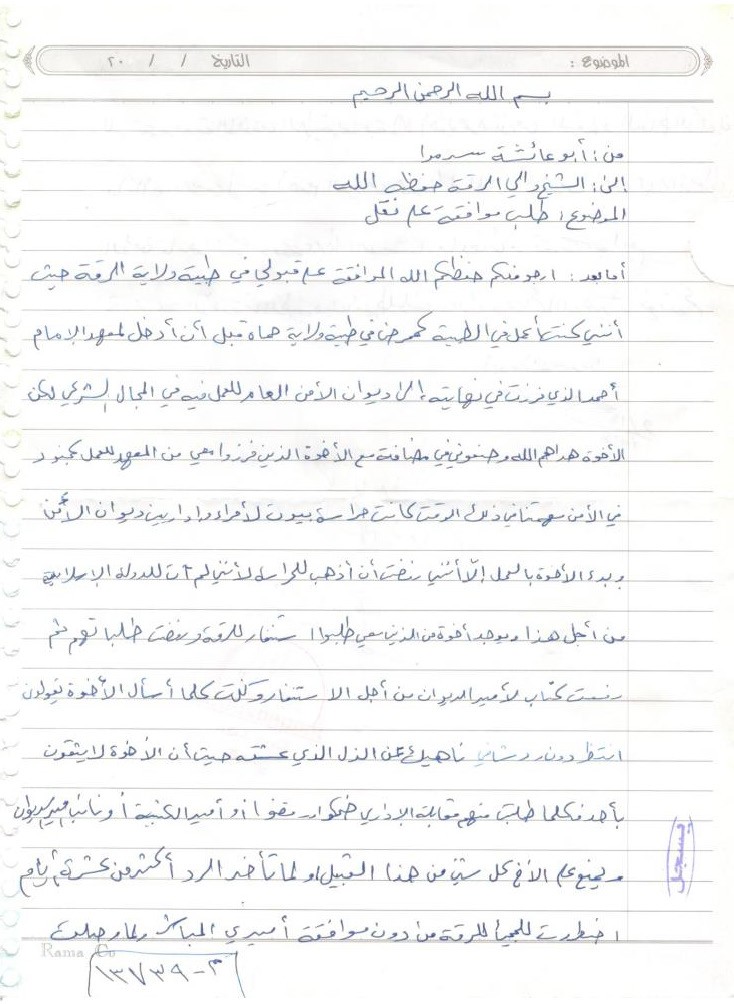 الموضوع :                    التاريخ    /    /    ٢٠
بسم الله الرحمن الرحيم
من : أبو عائشة سرمدا
إلى : الشيخ والي الرقة حفظه الله
الموضوع : طلب موافقة على نقل
أما بعد : ارجو منكم حفظكم الله الموافقة على قبولي في طبية ولاية الرقة حيث
أنني كنت أعمل في الطبية كممرض في طبية ولاية حماة قبل أن أدخل لمعهد الإمام
أحمد الذي فرزت في نهايته إلى ديوان الأمن العام للعمل فيه في المجال الشرعي لكن
الأخوة هداهم الله وضعوني في مضافة مع الأخوة الذين فرزوا معي من المعهد للعمل كجنود
في الأمن مهمتنا في ذلك الوقت كانت حراسة بيوت لأمراء وإداريين ديوان الأمن
وبدء الأخوة بالعمل إلّا أنني رفضت أن أذهب للحراسة لأنني لم آت للدولة الإسلامية
من أجل هذا ويوجد أخوة من الذين معي طلبوا استنفار للرقة ورفضت طلباتهم ثم
رفعت كتاب لأمير الديوان من أجل الاستنفار وكنت كلما أسأل الأخوة يقولون
انتظر دون رد شافي ناهيك عن الذل الذي عشته حيث أن الأخوة لا يثقون
بأحد فكلما طلبت منهم مقابلة الإداري ضحكوا ورفضوا أو أمير الكتيبة أو نائب أمير الديوان
ويمنع على الأخ كل شيء من هذا القبيل ولما تأخر الرد أكثر من عشرة أيام
اضطررت للمجيئ للرقة من دون موافقة أميري المباشر ولما وصلت
يسجل
Rama Co
١٣٧٣٩-٣